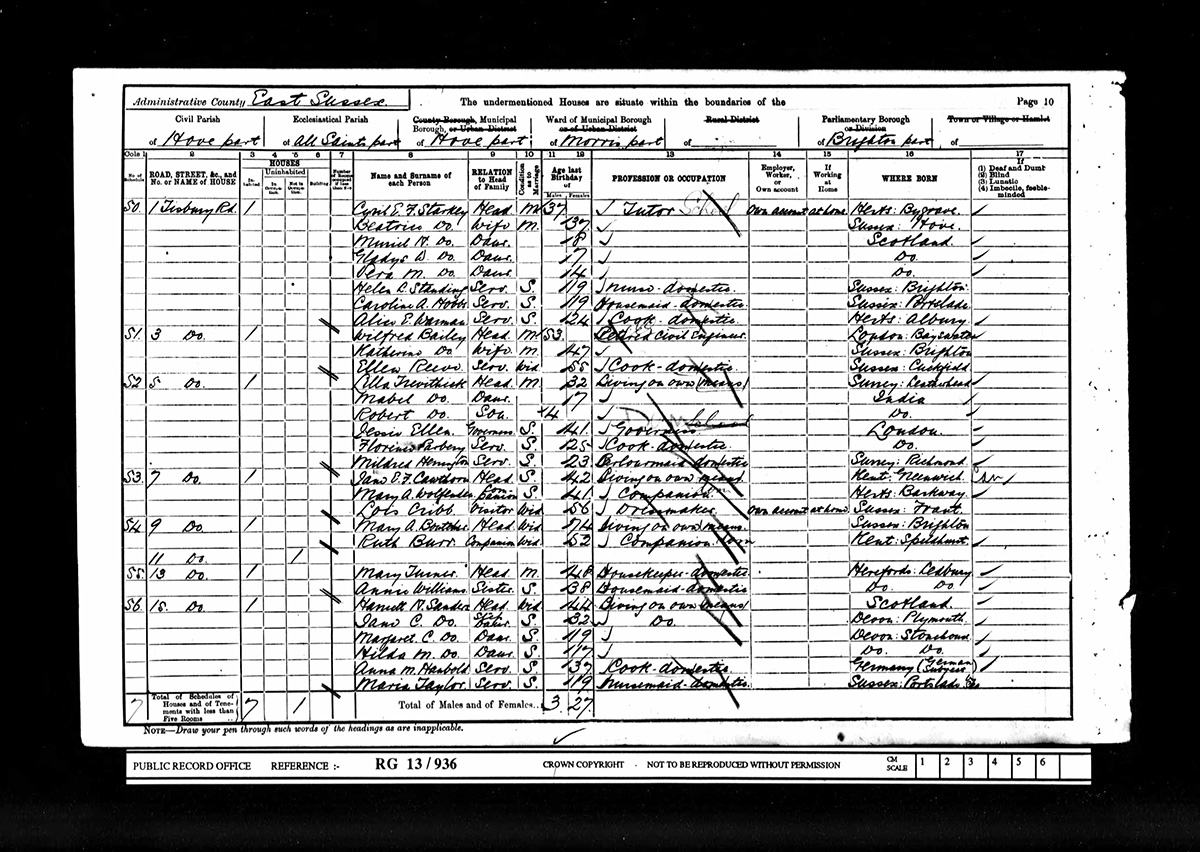 Administrative County East Sussex
The undermentioned Houses are situate within the boundaries of the
Page 10
Civil Parish of Hove part
Ecclesiastical Parish of All Saints part
County Borough, Municipal Borough, or Urban District of Hove part
Ward of Municipal Borough or of Urban District of Morris part
Rural District of
Parliamentary Borough or Division of Brighton part
Town or Village or Hamlet of
Cols 1 2 3 4 5 6 7 8 9 10 11 12 13 14 15 16 17
No. of Schedule
ROAD, STREET, &c., and No. or NAME of HOUSE
HOUSES
Inhabited
Uninhabited
In Occupation
Not in Occupation
Building
Number of Rooms occupied if less than five
Name and Surname of each Person
RELATION to Head of Family
Condition as to Marriage
Age last Birthday of
Males Females
PROFESSION OR OCCUPATION
Employer, Worker, or Own account
If Working at Home
WHERE BORN
If (1) Deaf and Dumb (2) Blind (3) Lunatic (4) Imbecile, feeble-minded
50 1 Tisbury Rd. 1 Cyril E. F. Starkey Head M 37 Tutor School Own account at home Herts: Bygrave
Beatrice Do. Wife M. 37 Sussex: Hove
Muriel Do. Daur. 8 Scotland
Gladys Do. Daur. 7 Do.
Vera M. Do. Daur. 4 Do.
Helen Standing Serv. S. 19 Nurse - domestic Sussex: Brighton
Caroline A. Serv. S. 19 Housemaid - domestic Sussex: Portslade
Alice E. Warman Serv. S. 24 Cook - domestic Herts: Albury
51 3 Do. 1 Wilfred Bailey Head M 53 Retired Civil Engineer London: Bayswater
Katherine Do. Wife M. 47 Sussex: Brighton
Ellen Reeve Serv. Wid 55 Cook - domestic Sussex: Cuckfield
52 5 Do. 1 Trevithick Head M. 32 Living on own means Surrey: Leatherhead
Mabel Do. Daur. 7 India
Robert Do. Son 4 Do.
Jessie Ellen Governess S. 41 Governess School London
Serv. S. 25 Cook - domestic Do.
Mildred Serv. S. 23 Parlourmaid domestic Surrey: Richmond
53 7 Do. 1 Jane Cawthorn Head S. 42 Living on own means Kent: Greenwich
Mary A. Companion S. 41 Companion Herts: Barkway
Lois Cribb Visitor Wid 56 Dressmaker Own account at home Sussex: Frant
54 9 Do. 1 Mary A. Head Wid 74 Living on own means Sussex: Brighton
Ruth Burr Companion Wid. 52 Companion Kent: Speldhurst
11 Do. 1
55 13 Do. 1 Mary Turner Head M. 48 Housekeeper - domestic Herefords: Ledbury
Annie Williams Sister S. 38 Housemaid - domestic Do. Do.
56 15 Do. 1 Harriett Sander Head Wid 44 Living on own means Scotland
Jane C. Do. S. 32 Do. Devon: Plymouth
Margaret C. Do. Daur S. 19 Devon: Stonehouse
Hilda M. Do. Daur S. 17 Do. Do.
Anna M. Serv. S. 37 Cook - domestic Germany (German Subject)
Maria Taylor Serv. S. 19 Nursemaid - domestic Sussex: Portslade
7 Total of Schedules of Houses and of Tenements with less than Five Rooms 7 1 Total of Males and of Females... 3 27
NOTE—Draw your pen through such words of the headings as are inapplicable.
PUBLIC RECORD OFFICE REFERENCE :- RG 13 / 936 CROWN COPYRIGHT - NOT TO BE REPRODUCED WITHOUT PERMISSION CM SCALE 1 2 3 4 5 6